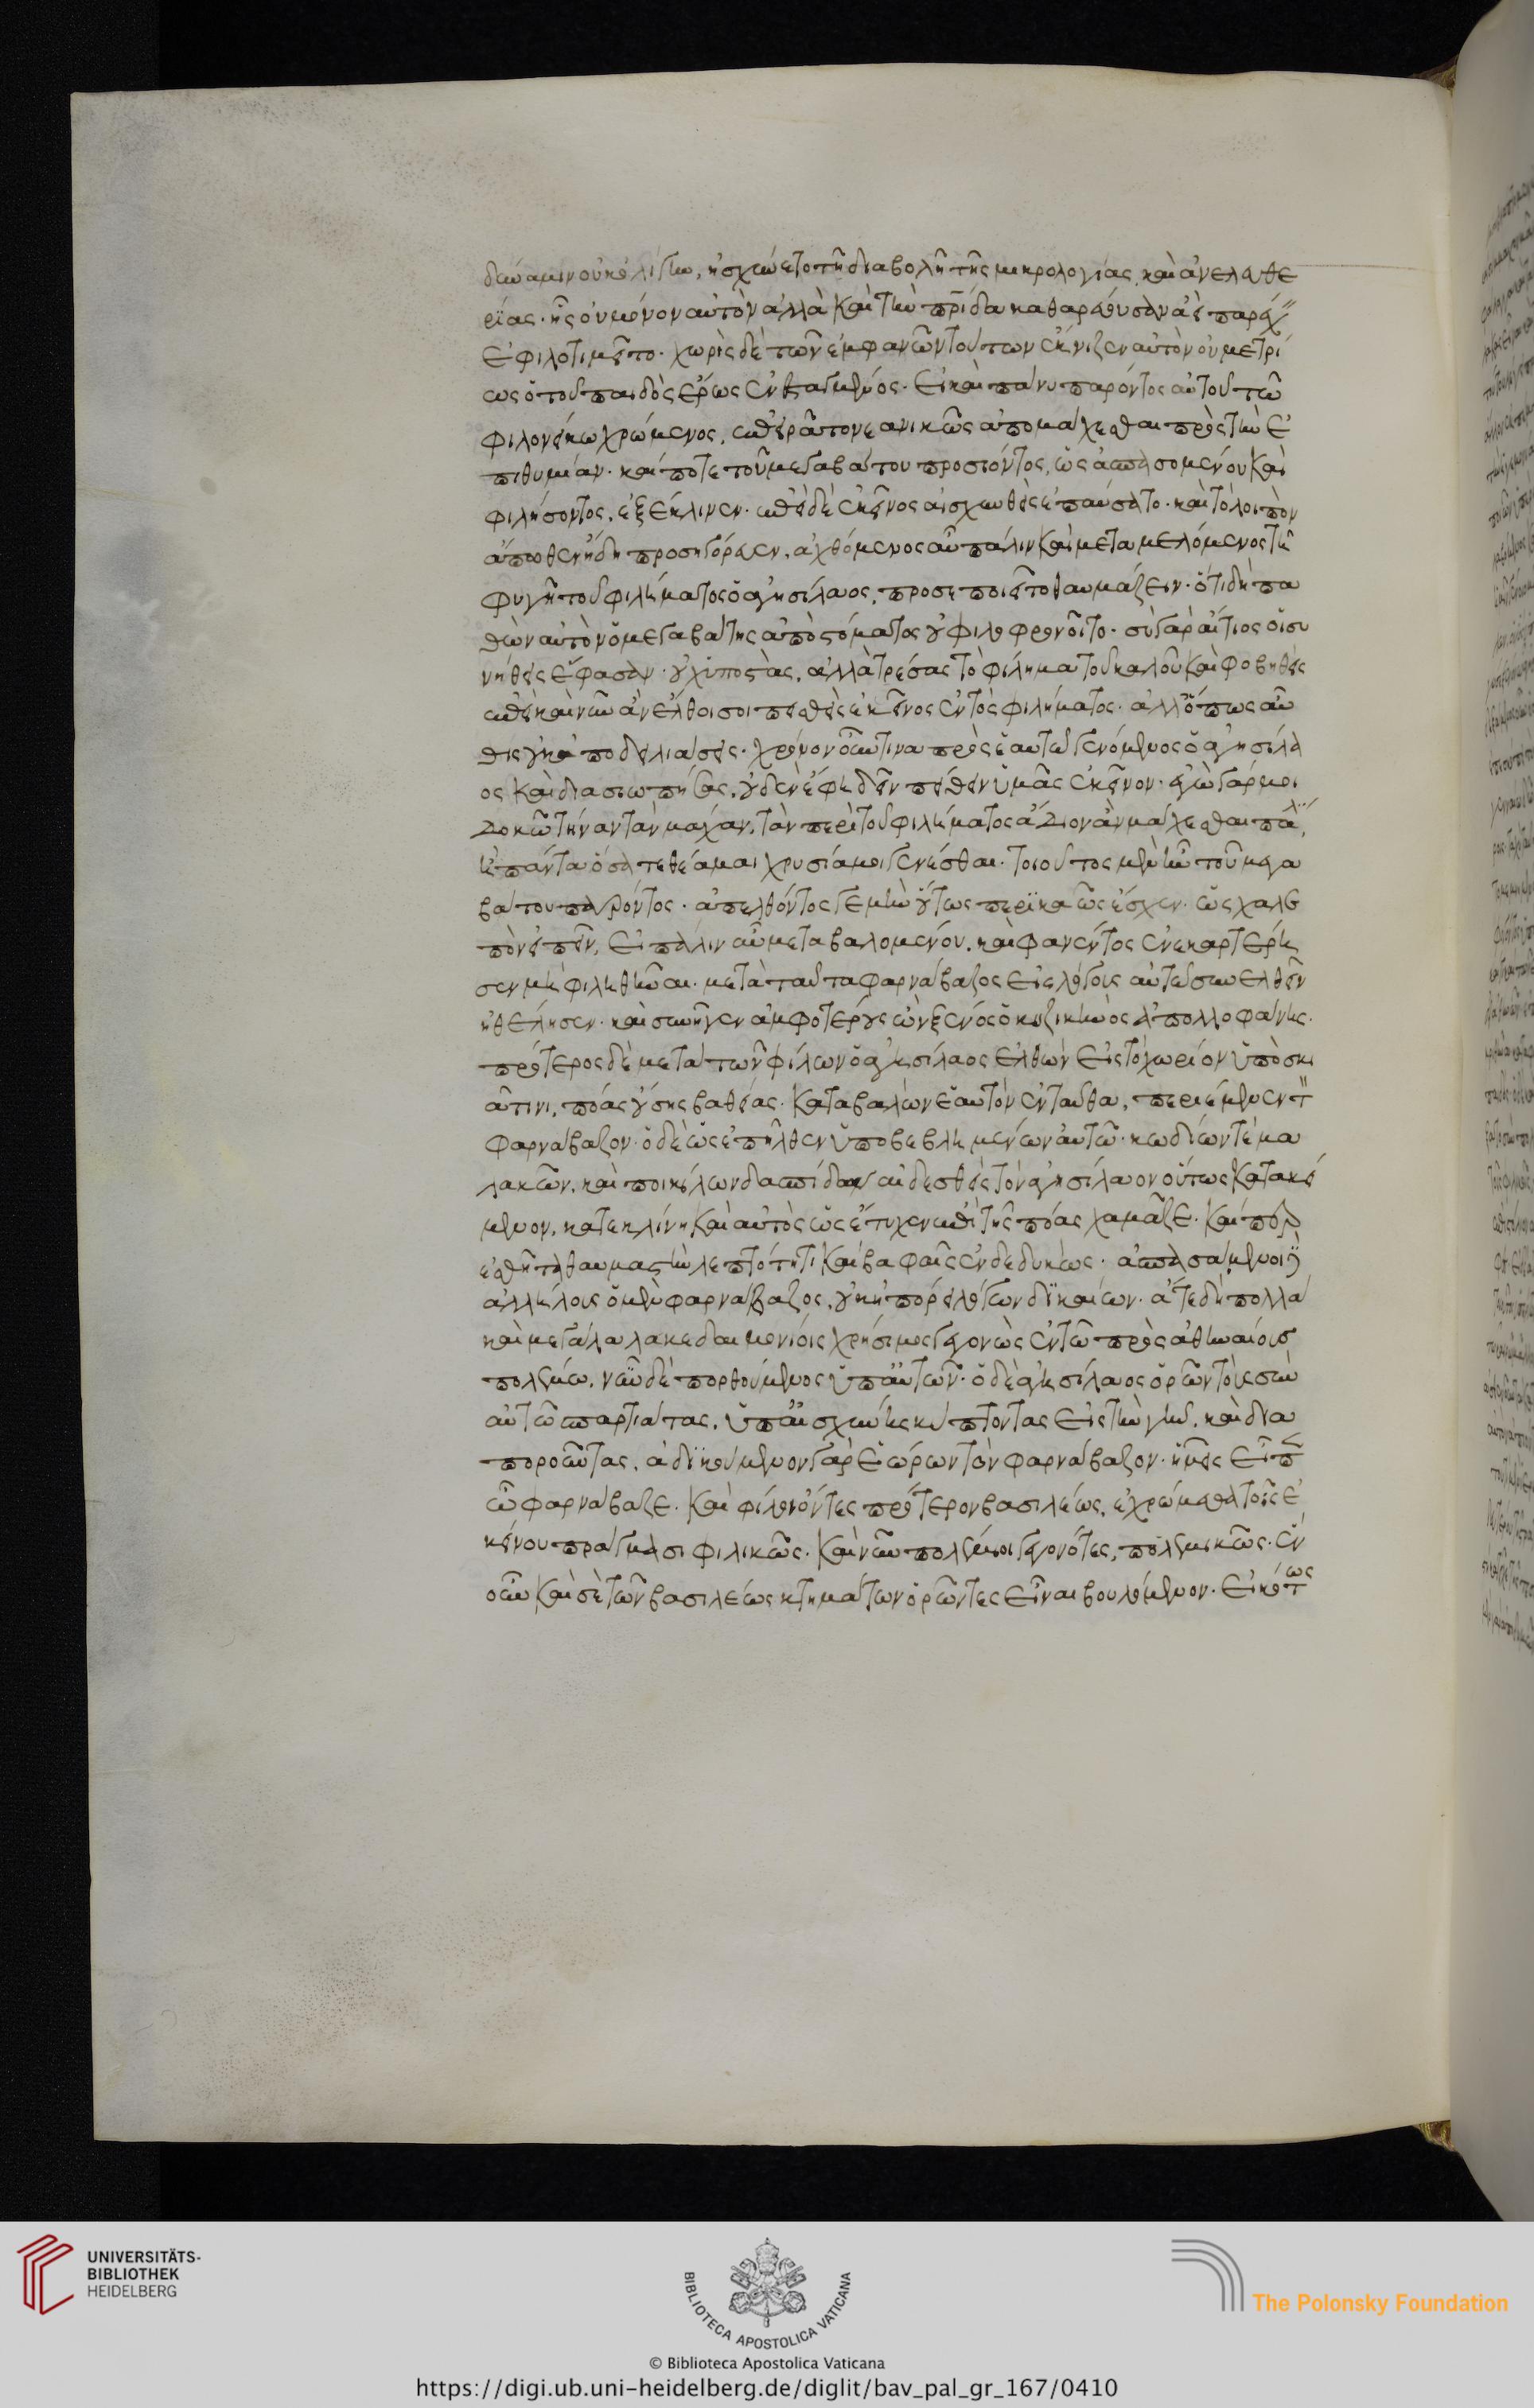 δύναμιν οὐκ ὀλίγην, ἠσχύνετο τῆ διαβολῆ τῆς μικρολογίας, καὶ ἀνελευθε
ρίας· ἧς οὐ μόνον αὐτὸν ἀλλὰ καὶ τὴν πρίδα καθαρεύουσαν ἀεὶ παρέχ
ἐφιλοτιμεῖτο· χωρὶς δὲ τῶν ἐμφανῶν τούτων ἔκνιζεν αὐτὸν οὐ μετρί
ως ὁ τοῦ παιδὸς ἔρως ἐνεσταγμένος· εἰ καὶ πάνυ παρόντος αὐτοῦ τῶ
φιλονείκω χρώμενος, ἐπειρᾶτο νεανικῶς ἀπομάχεσθαι πρὸς τὴν ἐ
πιθυμίαν· καί ποτε τοῦ μεγαβάτου προσιόντος, ὡς ἀσπασομένου καὶ
φιλήσοντος, ἐξέκλινεν· ἐπεὶ δὲ ἐκεῖνος αἰσχυνθεὶς ἐπαύσατο· καὶ τὸ λοιπὸν
ἄπωθεν ἤδη προσηγόρευεν, ἀχθόμενος αὖ πάλιν καὶ μεταμελόμενος τῆ
φυγῆ τοῦ φιλήματος ὁ ἀγησίλαος, προσεποιεῖτο θαυμάζειν· ὅ,τι δὴ πα
θὼν αὐτὸν ὁ μεγαβάτης ἀπὸ στόματος οὐ φιλοφρονοῖτο· σὺ γὰρ αἴτιος οἱ συ
νήθεις ἔφασαν· οὐχ ὑποστὰς, ἀλλὰ τρέσας τὸ φίλημα τοῦ καλοῦ καὶ φοβηθεὶς
ἐπεὶ καὶ νῦν ἂν ἔλθοι σοι πεισθεὶς ἐκεῖνος ἐντὸς φιλήματος· ἀλλ' ὅπως αὖ
θις οὐκ ἀποδειλιάσεις· χρόνον οὖν τινα πρὸς ἑαυτῶ γενόμενος ὁ ἀγησίλα
ος καὶ διασιωπήσας, οὐδὲν ἔφη δεῖν πείθειν ὑμᾶς ἐκεῖνον· ἐγὼ γάρ μοι
δοκῶ τήναν τὰν μάχαν, τὰν περὶ τοῦ φιλήματος ἅδιον ἂν μάχεσθαι πάλιν
ἢ πάντα ὅσα τεθέαμαι χρυσία μοι γενέσθαι· τοιοῦτος μὲν ἦν τοῦ μεγα
βάτου παρόντος· ἀπελθόντος γε μὴν οὕτως περικαῶς ἔσχεν· ὡς χαλε
πὸν εἰπεῖν, εἰ πάλιν αὖ μεταβαλομένου, καὶ φανέντος ἐνεκαρτέρη
σεν μὴ φιληθῆναι· μετὰ ταῦτα φαρνάβαζος εἰς λόγους αὐτῶ συνελθεῖν
ἠθέλησεν· καὶ συνῆγεν ἀμφοτέρους ὢν ξένος ὁ κυζικηνὸς ἀπολλοφάνης·
πρότερος δὲ μετὰ τῶν φίλων ὁ ἀγησίλαος ἐλθὼν εἰς τὸ χωρίον ὑπὸ σκι
ᾶ τινι, πόας οὔσης βαθείας· καταβαλὼν ἑαυτὸν ἐνταῦθα, περιέμενεν τ
φαρνάβαζον· ὁ δὲ ὡς ἐπῆλθεν ὑποβεβλημένων αὐτῶ· κωδίων τὲ μα
λακῶν, καὶ ποικίλων δαπίδων αἰδεσθεὶς τὸν ἀγησίλαον οὕτως κατακεί
μενον, κατεκλίνη καὶ αὐτὸς ὡς ἔτυχεν ἐπὶ τῆς πόας χαμᾶζε· καίπερ
ἐσθῆτα θαυμαστὴν λεπτότητι καὶ βαφαῖς ἐνδεδυκώς· ἀσπασάμενοι δ
ἀλλήλους ὁ μὲν φαρνάβαζος, οὐκ ἠπόρει λόγων δικαίων· ἅτε δὴ πολλὰ
καὶ μεγάλα λακεδαιμονίοις χρήσιμος γεγονὼς ἐν τῶ πρὸς ἀθηναίους
πολέμω, νῦν δὲ πορθούμενος ὑπ' αὐτῶν· ὁ δὲ ἀγησίλαος ὁρῶν τοὺς σὺν
αὐτῶ σπαρτιάτας, ὑπ' αἰσχύνης κύπτοντας εἰς τὴν γῆν, καὶ δια
ποροῦντας, ἀδικούμενον γὰρ ἑώρων τὸν φαρνάβαζον· ἡμεῖς εἶπ
ὦ φαρνάβαζε· καὶ φίλοι ὄντες πρότερον βασιλέως, ἐχρώμεθα τοῖς ἐ
κείνου πράγμασι φιλικῶς· καὶ νῦν πολέμιοι γεγονότες, πολεμικῶς· ἓν
οὖν καὶ σὲ τῶν βασιλέως κτημάτων ὁρῶντες εἶναι βουλόμενον· εἰκότως
UNIVERSITÄTS-
BIBLIOTHEK
HEIDELBERG
BIBLIOTECA APOSTOLICA VATICANA
The Polonsky Foundation
© Biblioteca Apostolica Vaticana
https://digi.ub.uni-heidelberg.de/diglit/bav_pal_gr_167/0410